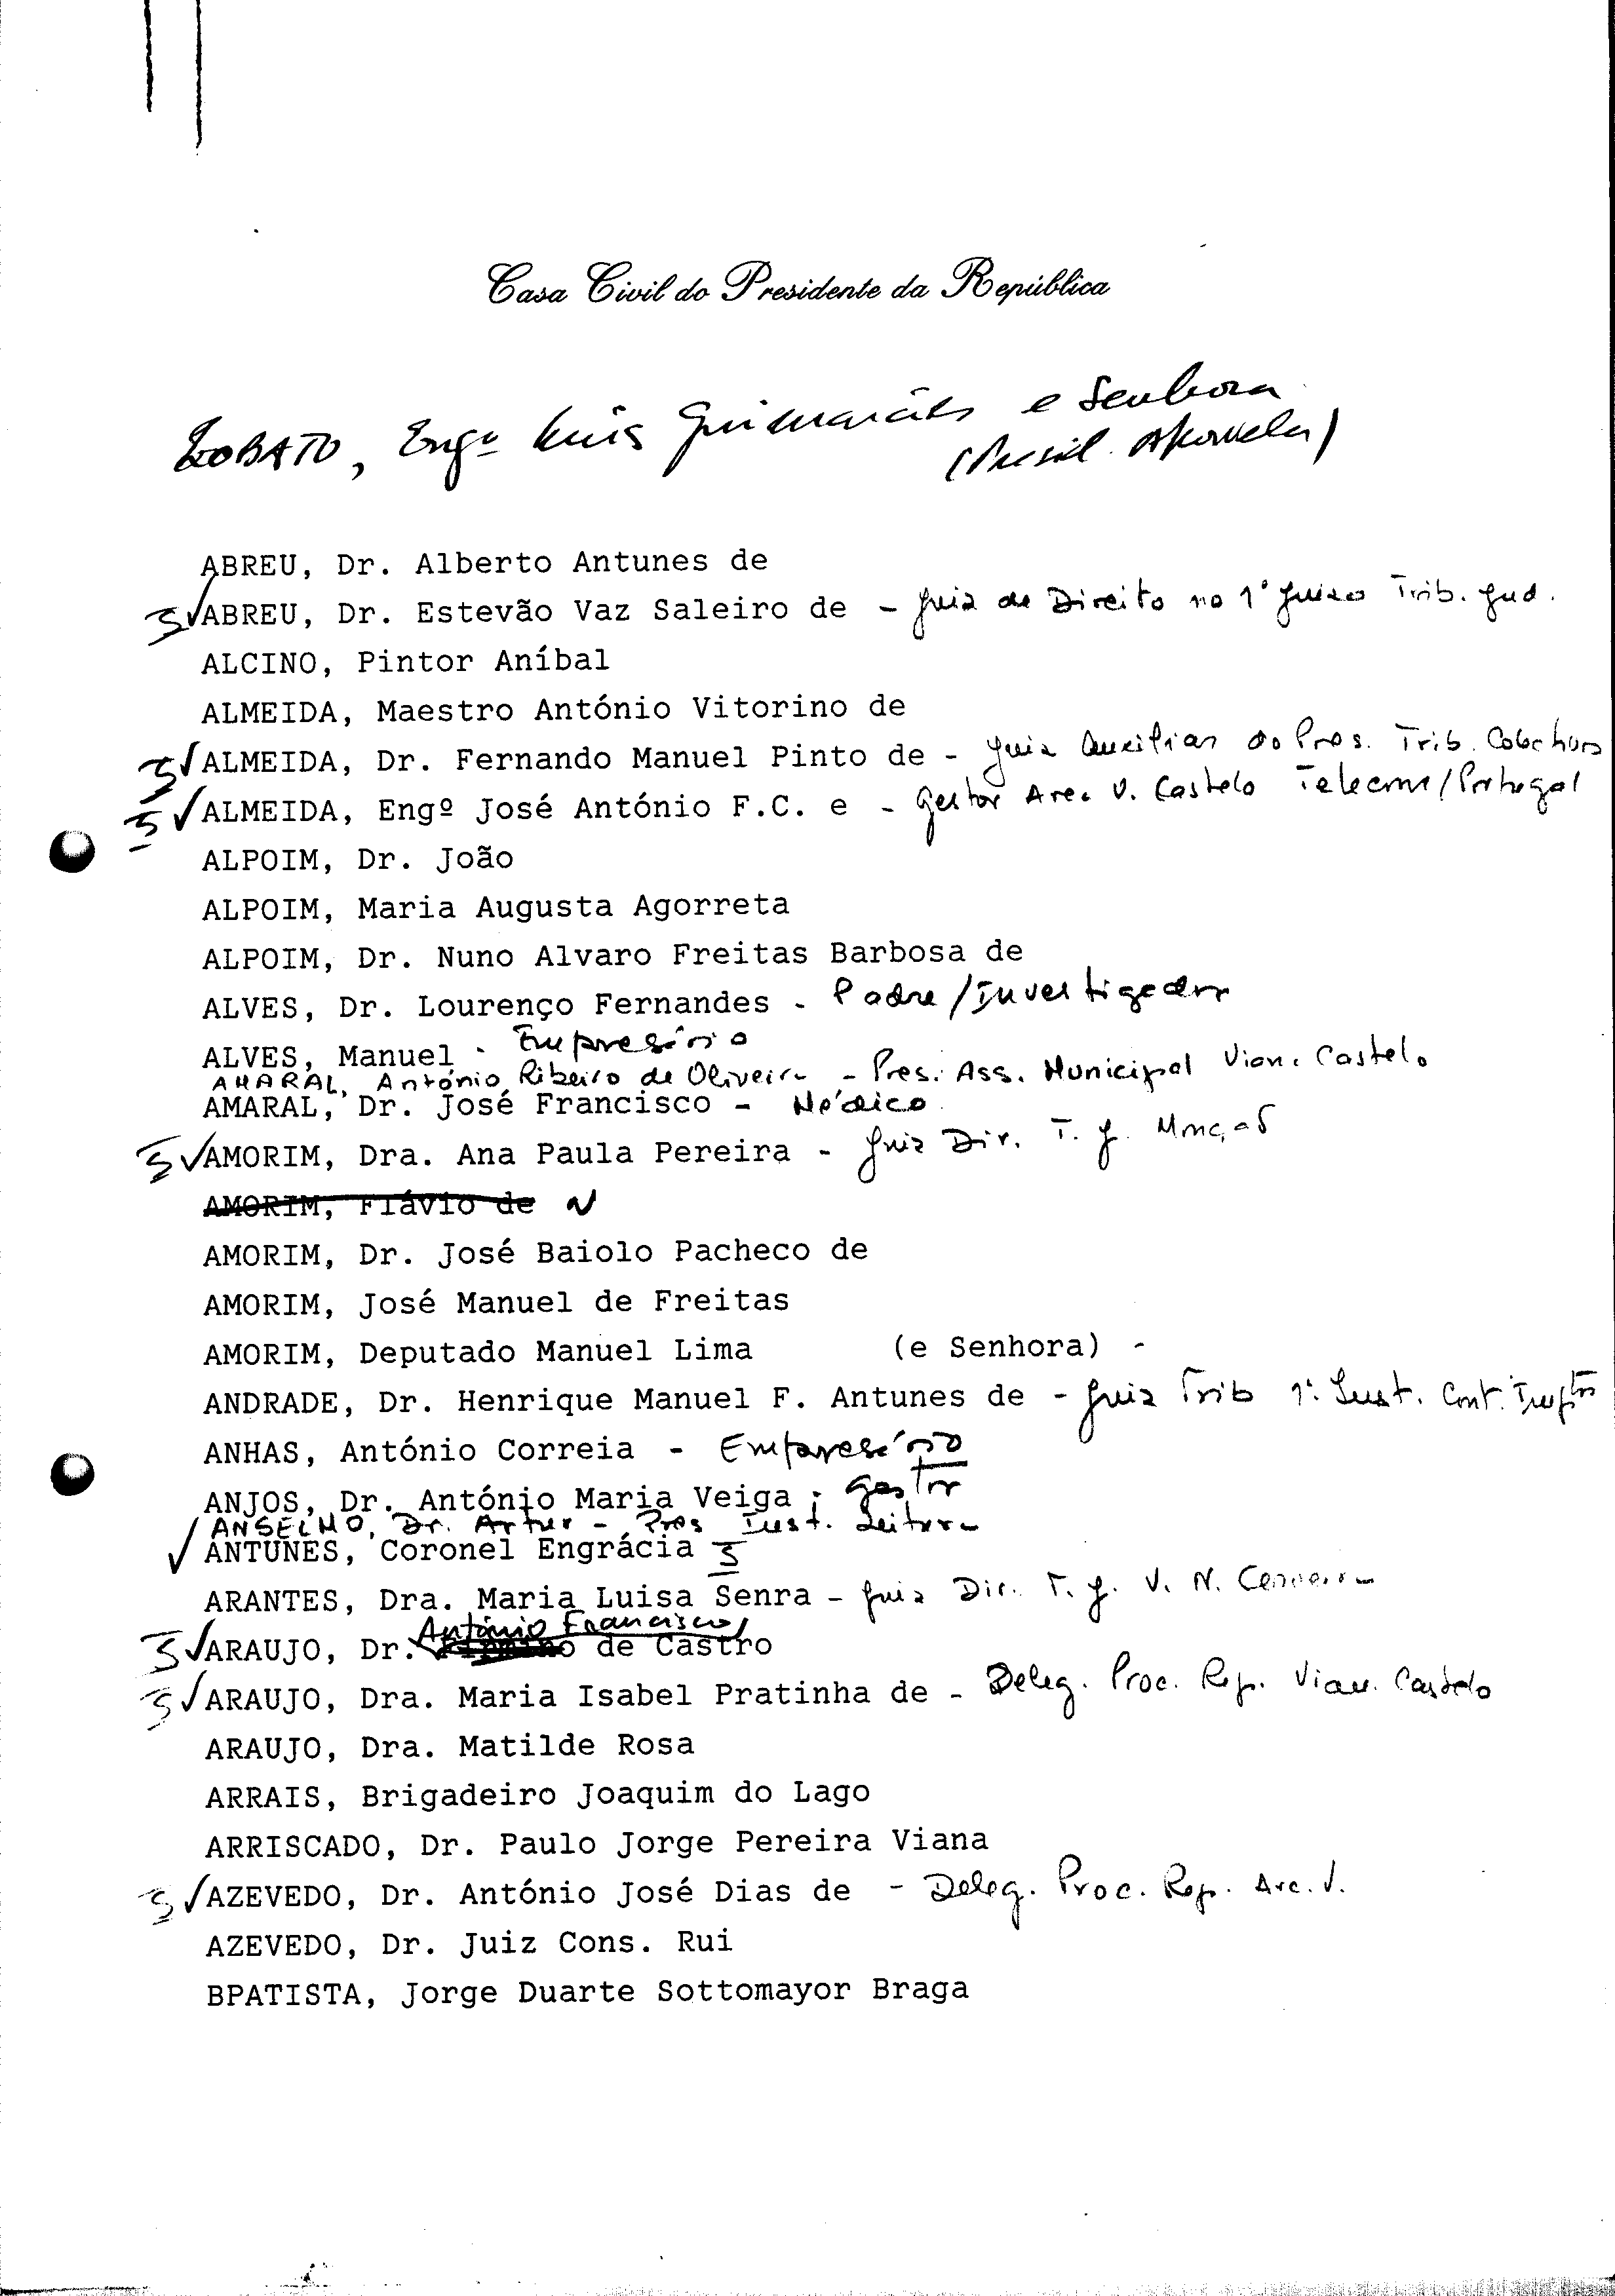 Casa Civil do Presidente da República
LOBATO, Engº Luís Guimarães e Senhora
ABREU, Dr. Alberto Antunes de
ABREU, Dr. Estevão Vaz Saleiro de - Juiz de Direito no 1º Juizo Trib. Jud.
ALCINO, Pintor Aníbal
ALMEIDA, Maestro António Vitorino de
ALMEIDA, Dr. Fernando Manuel Pinto de - Juiz Auxiliar do Pres. Trib.
ALMEIDA, Engº José António F.C. e - Gestor Area V. Castelo Telecom/Portugal
ALPOIM, Dr. João
ALPOIM, Maria Augusta Agorreta
ALPOIM, Dr. Nuno Alvaro Freitas Barbosa de
ALVES, Dr. Lourenço Fernandes - Padre/Investigador
ALVES, Manuel - Empresário
AMARAL, António Ribeiro de Oliveira - Pres. Ass. Municipal Viana Castelo
AMARAL, Dr. José Francisco - Médico
AMORIM, Dra. Ana Paula Pereira - Juiz Dir. T. J. Monção
AMORIM, Flávio de N
AMORIM, Dr. José Baiolo Pacheco de
AMORIM, José Manuel de Freitas
AMORIM, Deputado Manuel Lima (e Senhora) -
ANDRADE, Dr. Henrique Manuel F. Antunes de - Juiz Trib 1ª Inst. Cont.
ANHAS, António Correia - Empresário
ANJOS, Dr. António Maria Veiga - Gestor
ANSELMO, Dr. Artur - Pres Inst. Leitura
ANTUNES, Coronel Engrácia
ARANTES, Dra. Maria Luisa Senra - Juiz Dir. T. J. V. N. Cerveira
António Francisco
ARAUJO, Dr. de Castro
ARAUJO, Dra. Maria Isabel Pratinha de - Deleg. Proc. Rep. Vian. Castelo
ARAUJO, Dra. Matilde Rosa
ARRAIS, Brigadeiro Joaquim do Lago
ARRISCADO, Dr. Paulo Jorge Pereira Viana
AZEVEDO, Dr. António José Dias de - Deleg. Proc. Rep. Arc. V.
AZEVEDO, Dr. Juiz Cons. Rui
BPATISTA, Jorge Duarte Sottomayor Braga